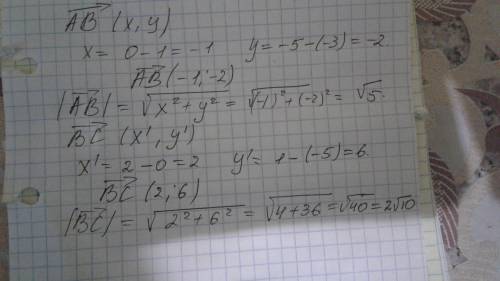 AB⃗ (x, y)
x = 0 - 1 = -1 y = -5 - (-3) = -2
AB⃗ (-1; -2)
|AB⃗| = √(x² + y²) = √((-1)² + (-2)²) = √5.
BC⃗ (x', y')
x' = 2 - 0 = 2 y' = 1 - (-5) = 6
BC⃗ (2; 6)
|BC⃗| = √(2² + 6²) = √(4 + 36) = √40 = 2√10